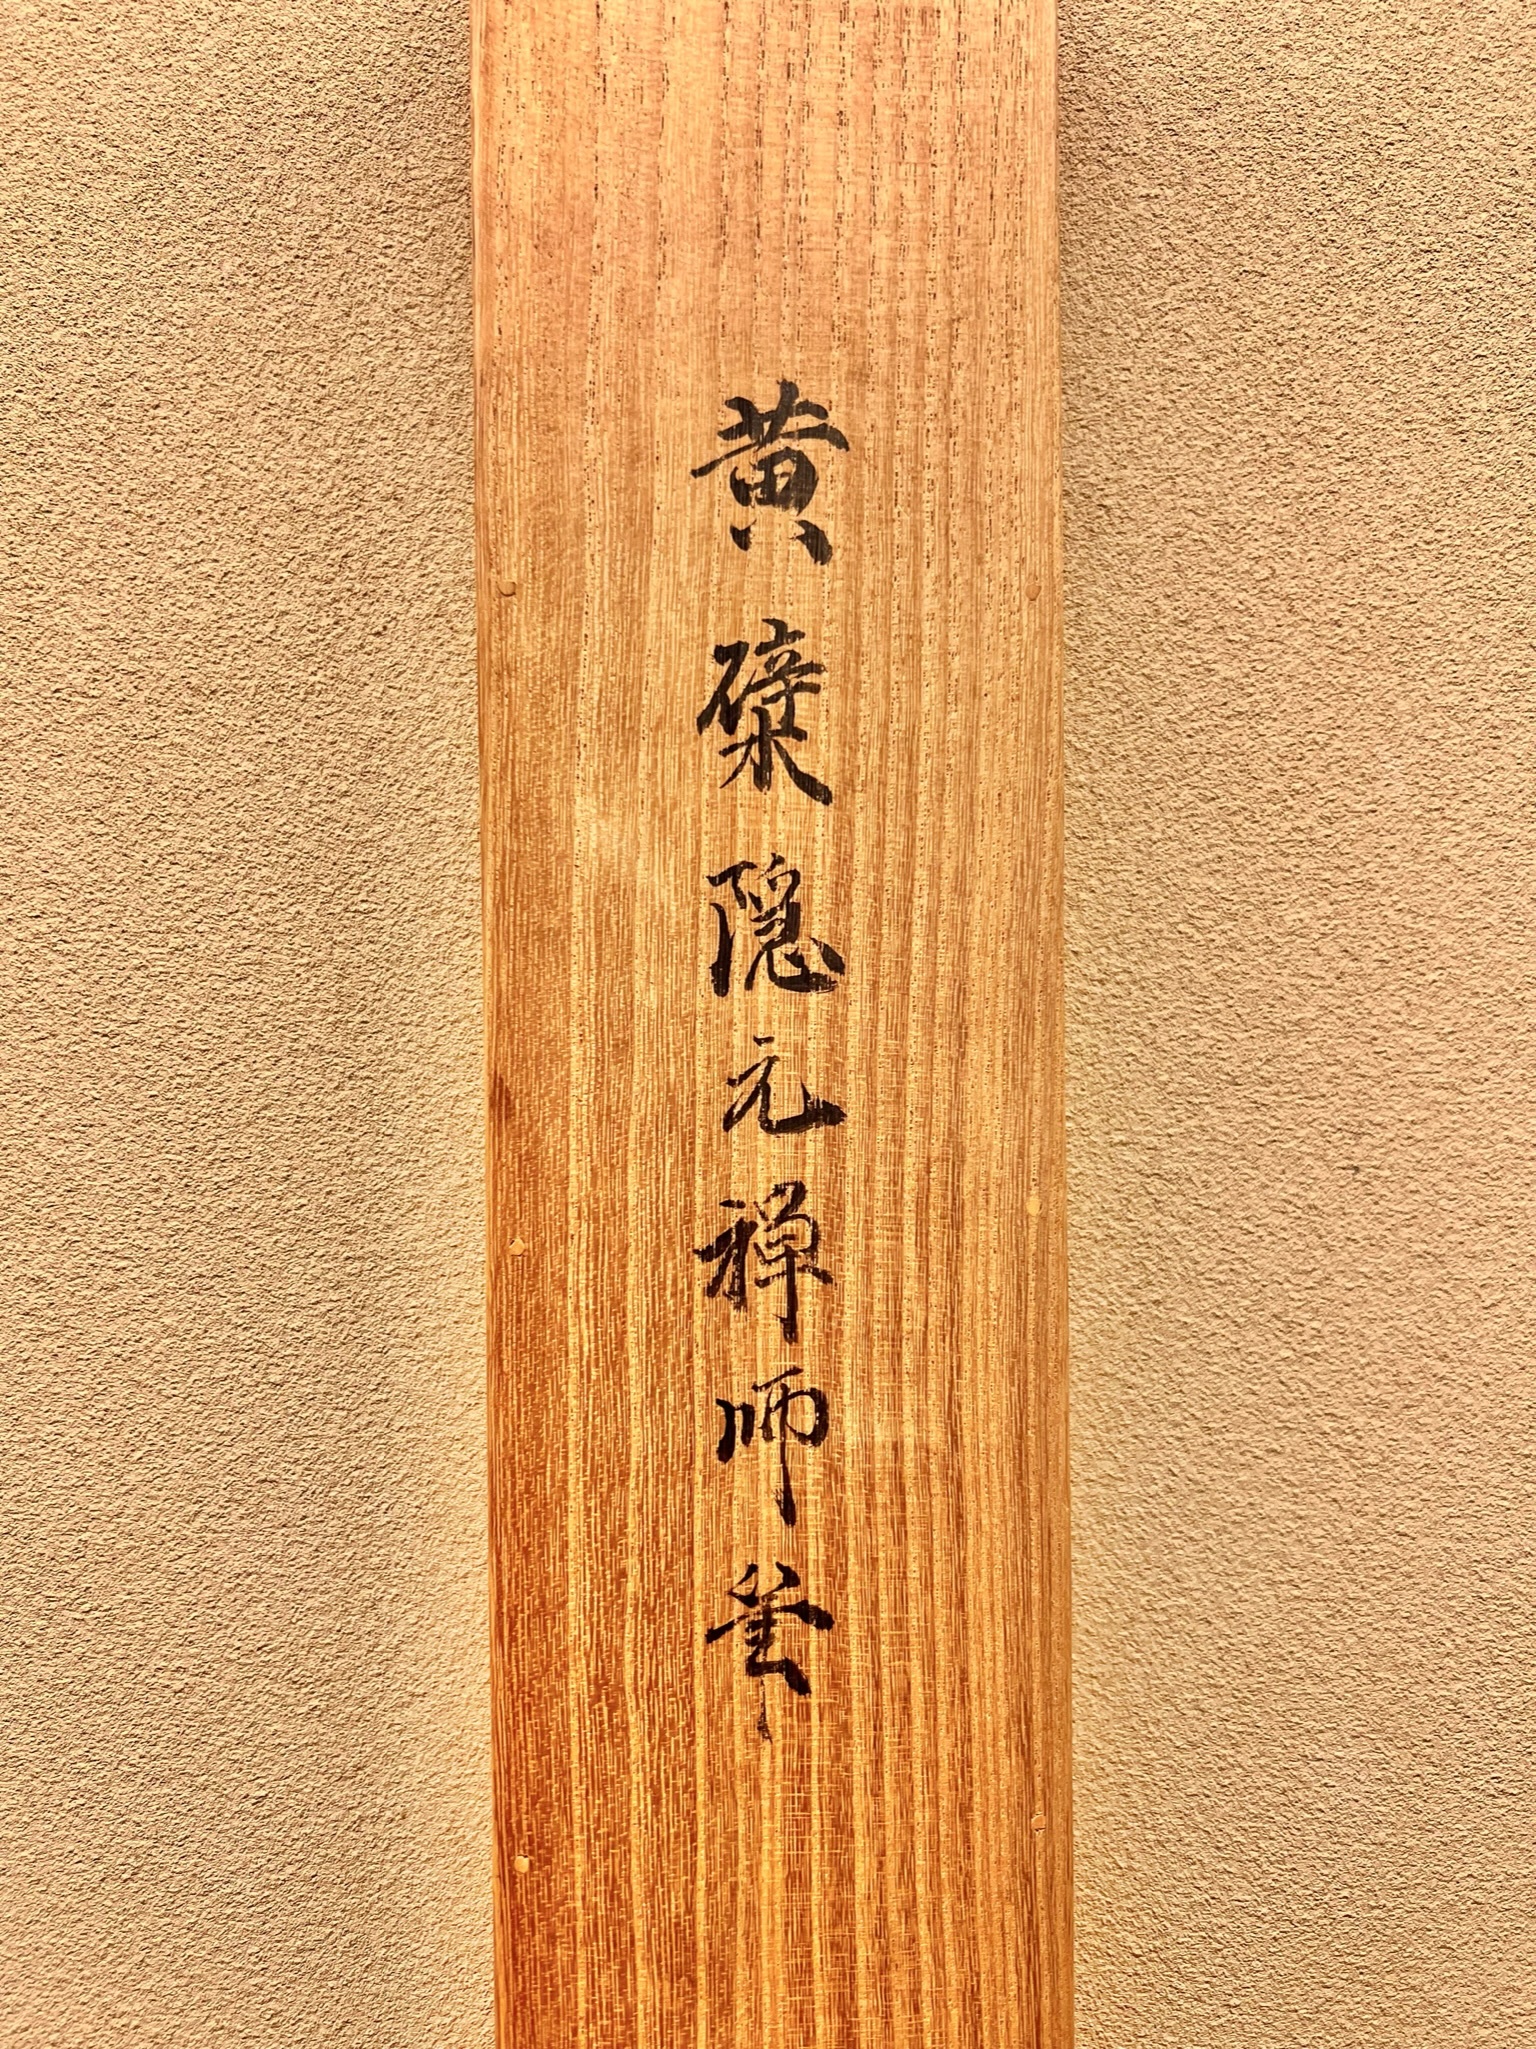 黄檗隠元禅師筆